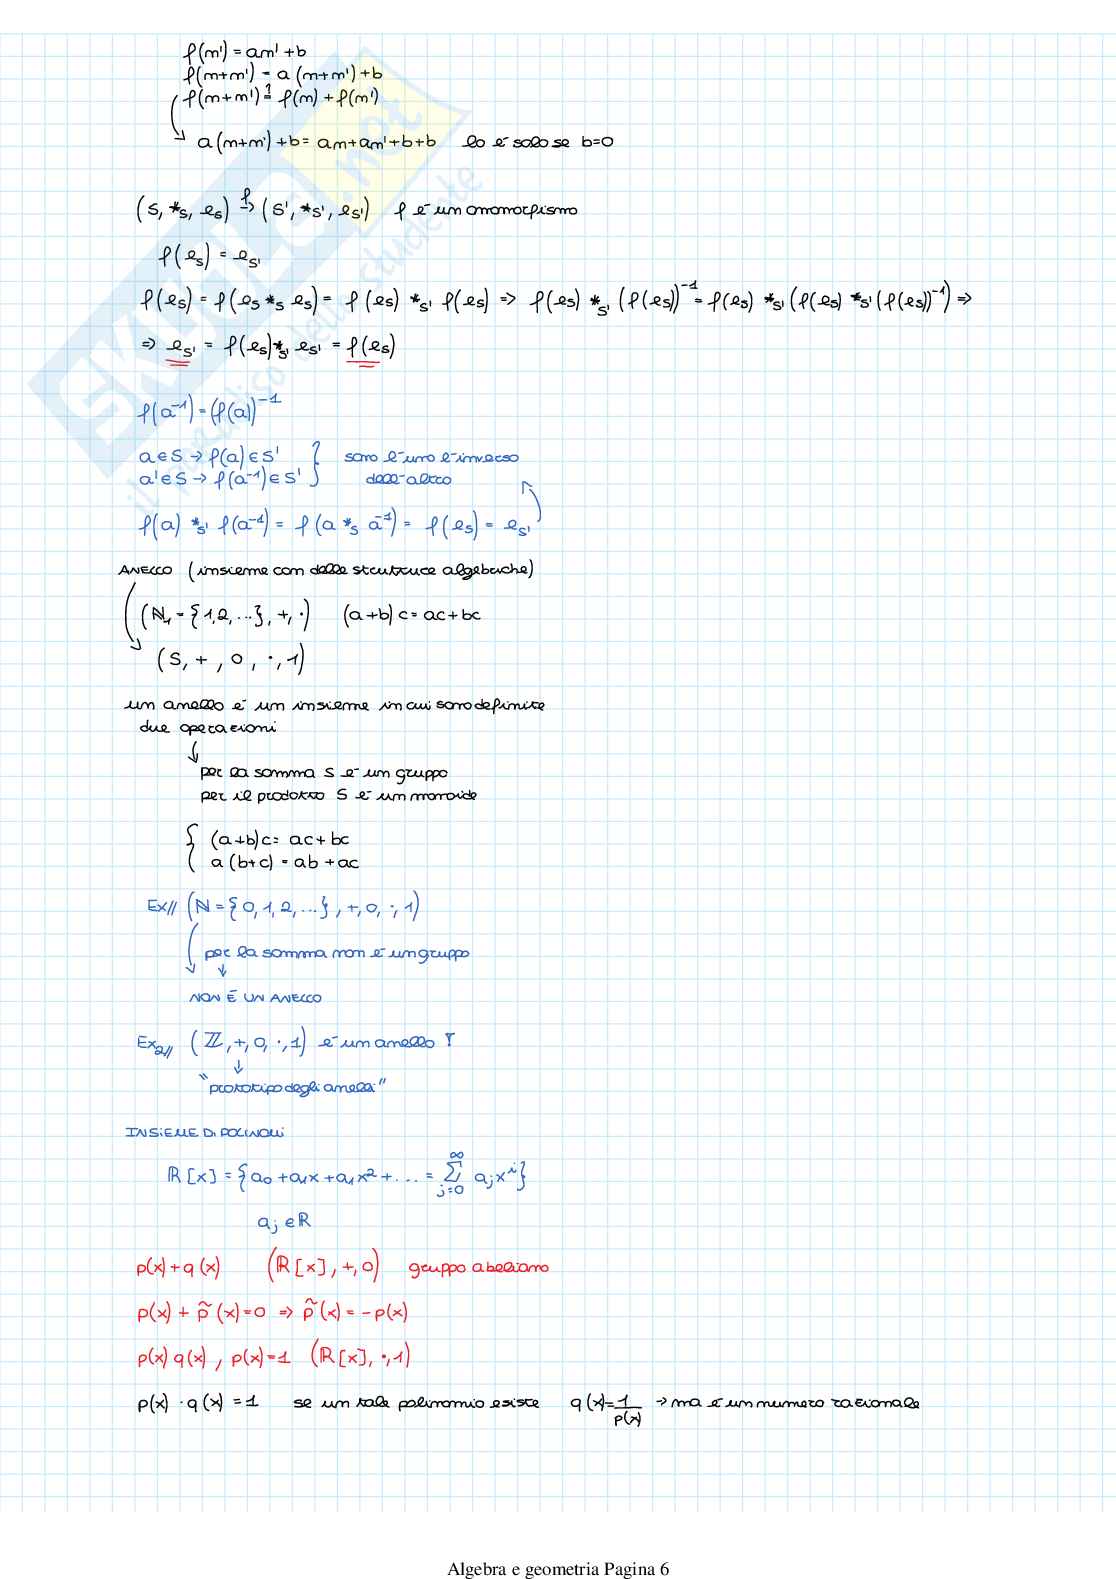 f(m') = am' + b
f(m+m') = a(m+m') + b
f(m+m') ≟ f(m) + f(m')
a(m+m') + b = am + am' + b + b lo è solo se b=0
(S, *s, es) →f (S', *s', es') f è un omomorfismo
f(es) = es'
f(es) = f(es *s es) = f(es) *s' f(es) => f(es) *s' (f(es))⁻¹ = f(es) *s' (f(es) *s' (f(es))⁻¹) =>
=> es' = f(es) *s' es' = f(es)
f(a⁻¹) = (f(a))⁻¹
a ∈ S → f(a) ∈ S' } sono l'uno l'inverso
a' ∈ S → f(a⁻¹) ∈ S' dell'altro
f(a) *s' f(a⁻¹) = f(a *s a⁻¹) = f(es) = es'
ANELLO (insieme con delle strutture algebriche)
(N₁ = {1,2,...}, +, ·) (a+b)c = ac+bc
(S, +, 0, ·, 1)
un anello è un insieme in cui sono definite
due operazioni
per la somma S è un gruppo
per il prodotto S è un monoide
{ (a+b)c = ac + bc
a(b+c) = ab + ac
Ex// (N = {0,1,2,...}, +, 0, ·, 1)
per la somma non è un gruppo
NON È UN ANELLO
Ex2// (ℤ, +, 0, ·, 1) è un anello !
"prototipo degli anelli"
INSIEME DI POLINOMI
ℝ[x] = {a₀ + a₁x + a₁x² + ... = ∑ j=0 ∞ aⱼxⁱ}
aⱼ ∈ ℝ
p(x) + q(x) (ℝ[x], +, 0) gruppo abeliano
p(x) + p̃(x) = 0 => p̃(x) = -p(x)
p(x) q(x), p(x) = 1 (ℝ[x], ·, 1)
p(x) · q(x) = 1 se un tale polinomio esiste q(x) = 1/p(x) → ma è un numero razionale
Algebra e geometria Pagina 6
SKUOLA.net
il paradiso dello studente